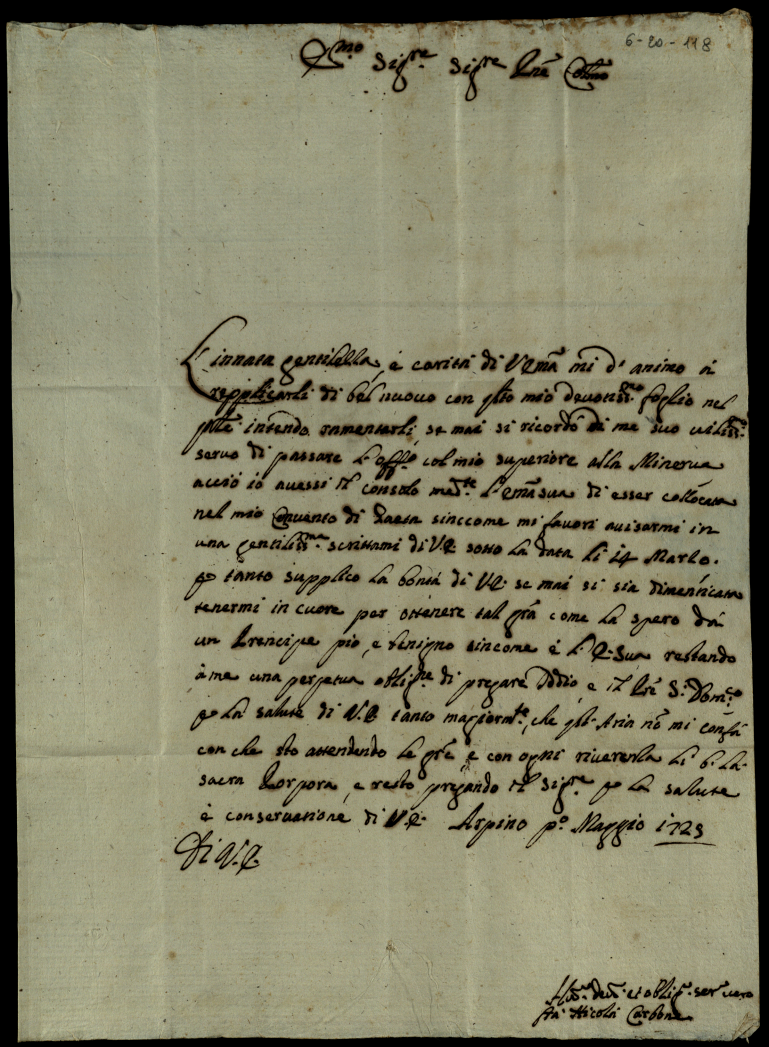 6-20-118
E.mo Sig.re Sig.re P̃ne Col.mo
L'innata gentilezza, e carità di V Em̃a mi dà animo à
repplicarli di bel nuovo con q̃to mio devotiss.mo foglio nel
p̃nte intendo ramentarli se mai si ricordò di me suo viliss.mo
servo di passare l'off.o col mio superiore alla Minerva
acciò io avessi il consolo med.te l'Em̃a sua di esser collocato
nel mio Convento di Gaeta sinccome mi favorì avisarmi in
una gentiliss.ma scrittami di V.E. sotto la data li 14 Marzo.
p tanto supplico la bontà di V.E. se mai si sia dimenticata
tenermi in cuore per ottenere tal gr̃a come la spero dà
un Prencipe pio, e benigno sincome è l'E. Sua restando
à me una perpetua oblig.ne di pregare Iddio, e il P̃re S. Dom.co
p la salute di V.E. tanto magiorm.te, che q̃st'Aria nõ mi confà
con che stò attendendo le gr̃e, e con ogni riverenza li b. la
sacra Porpora, e resto pregando il Sig.re p la salute
e conservatione di V.E. Arpino p.o Maggio 1723
Di V.E.
Hum.mo dev.mo et oblig. ser. vero
fra Nicola Carbone